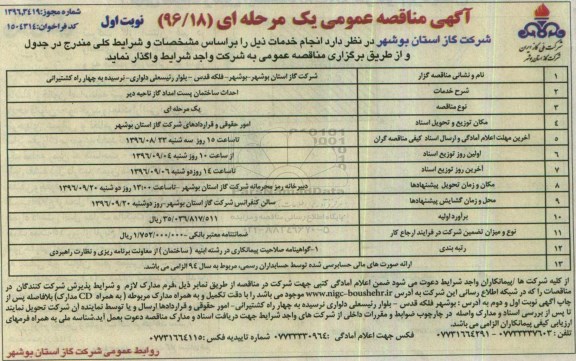 شماره مجوز: ۱۳۹۶.۳۴۱۹
آگهی مناقصه عمومی یک مرحله ای (۹۶/۱۸) نوبت اول
کد فراخوان: ۱۵۰۴۳۱۴
شرکت گاز استان بوشهر در نظر دارد انجام خدمات ذیل را براساس مشخصات و شرایط کلی مندرج در جدول
و از طریق برگزاری مناقصه عمومی به شرکت واجد شرایط واگذار نماید.
شرکت ملی گاز ایران
۱ نام و نشانی مناقصه گزار شرکت گاز استان بوشهر-بوشهر- فلکه قدس - بلوار رئیسعلی دلواری- نرسیده به چهار راه کشتیرانی
۲ شرح خدمات احداث ساختمان پست امداد گاز ناحیه دیر
۳ نوع مناقصه یک مرحله ای
۴ مکان توزیع و تحویل اسناد امور حقوقی و قراردادهای شرکت گاز استان بوشهر
۵ آخرین مهلت اعلام آمادگی و ارسال اسناد کیفی مناقصه گران تا ساعت ۱۵ روز سه شنبه ۱۳۹۶/۰۸/۲۳
۶ اولین روز توزیع اسناد از ساعت ۱۰ روز شنبه ۱۳۹۶/۰۹/۰۴
۷ آخرین روز توزیع اسناد تا ساعت ۱۴ روز دو شنبه ۱۳۹۶/۰۹/۰۶
۸ مکان و زمان تحویل پیشنهادها دبیرخانه رمز محرمانه شرکت گاز استان بوشهر - تا ساعت ۱۳:۰۰ روز دو شنبه ۱۳۹۶/۰۹/۲۰
۹ محل و زمان گشایش پیشنهادها سالن کنفرانس شرکت گاز استان بوشهر- روز دو شنبه ۱۳۹۶/۰۹/۲۰
۱۰ برآورد اولیه ۳۵/۰۳۶/۸۱۷/۵۱۱ ریال
۱۱ نوع و میزان تضمین شرکت در فرایند ارجاع کار ضمانتنامه معتبر بانکی ۱/۷۵۲/۰۰۰/۰۰۰ ریال
۱۲ رتبه بندی ۱-گواهینامه صلاحیت پیمانکاری در رشته ابنیه (ساختمان) از معاونت برنامه ریزی و نظارت راهبردی
۱۳ ارائه صورت های مالی حسابرسی شده توسط حسابداران رسمی، مربوط به سال ۹۴ الزامی می باشد.
از کلیه شرکت ها /پیمانکاران واجد شرایط دعوت می شود ضمن اعلام آمادگی کتبی جهت شرکت در مناقصه از طریق نمابر ذیل ،فرم مدارک لازم و شرایط پذیرش شرکت کنندگان در
مناقصات را که در شبکه اطلاع رسانی این شرکت به آدرس www.nigc-boushehr.ir موجود می باشد را با دقت تکمیل و به همراه مدارک مربوطه (به همراه CD مدارک) بلافاصله پس از
چاپ آگهی نوبت اول و دوم به آدرس: بوشهر فلکه قدس - بلوار رئیسعلی دلواری نرسیده به چهار راه کشتیرانی- امور حقوقی و قراردادها ارسال و یا توسط نماینده آن شرکت تحویل نمایند
تا پس از بررسی اسناد و مدارک واصله در چارچوب ضوابط و مقررات داخلی از شرکت های واجد شرایط جهت دریافت اسناد و مدارک مناقصه دعوت بعمل آید.شناسه ملی به همراه فرمهای
ارزیابی کیفی پیمانکاران الزامی می باشد.
تلفن: ۰۷۷۳۳۳۳۷۶۰۳ - ۰۷۷۳۱۶۶۴۲۹۱ فکس جهت اعلام آمادگی: ۰۷۷۳۳۳۳۰۹۶۴ شماره تاییدیه فکس: ۰۷۷۳۱۶۶۴۱۱۵
روابط عمومی شرکت گاز استان بوشهر